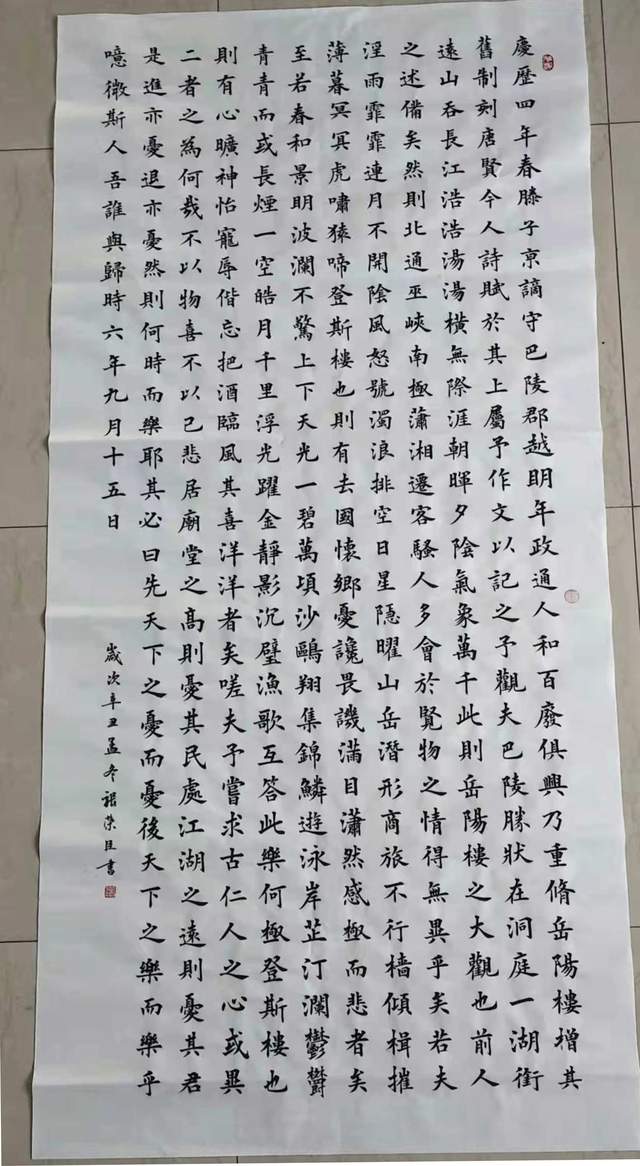 慶歷四年春滕子京謫守巴陵郡越明年政通人和百廢俱興乃重脩岳陽樓增其
舊制刻唐賢今人詩賦於其上屬予作文以記之予觀夫巴陵勝狀在洞庭一湖銜
遠山吞長江浩浩湯湯橫無際涯朝暉夕陰氣象萬千此則岳陽樓之大觀也前人
之述備矣然則北通巫峽南極瀟湘遷客騷人多會於覽物之情得無異乎矣若夫
淫雨霏霏連月不開陰風怒號濁浪排空日星隱曜山岳潛形商旅不行檣傾楫摧
薄暮冥冥虎嘯猿啼登斯樓也則有去國懷鄉憂讒畏譏滿目瀟然感極而悲者矣
至若春和景明波瀾不驚上下天光一碧萬頃沙鷗翔集錦鱗遊泳岸芷汀瀾鬱鬱
青青而或長煙一空皓月千里浮光躍金靜影沉璧漁歌互答此樂何極登斯樓也
則有心曠神怡寵辱偕忘把酒臨風其喜洋洋者矣嗟夫予嘗求古仁人之心或異
二者之為何哉不以物喜不以己悲居廟堂之高則憂其民處江湖之遠則憂其君
是進亦憂退亦憂然則何時而樂耶其必曰先天下之憂而憂後天下之樂而樂乎
噫微斯人吾誰與歸時六年九月十五日
歲次辛丑孟冬榮書